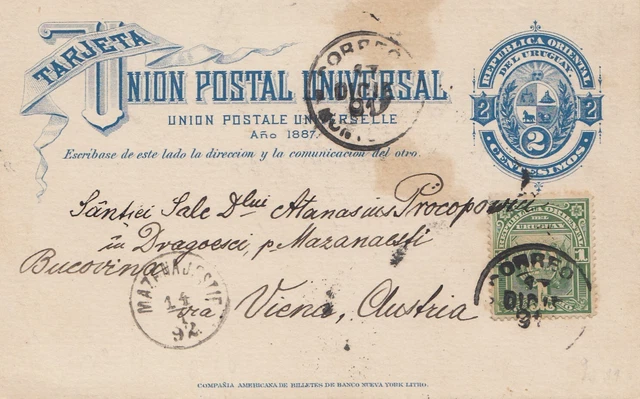 TARJETA
UNION POSTAL UNIVERSAL
UNION POSTALE UNIVERSELLE
Año 1887.
Escribase de este lado la direccion y la comunicacion del otro.
REPUBLICA ORIENTAL
DEL URUGUAY.
2 2
2
CENTESIMOS
CORREO
17
DICIE
91
Sântiei Sale Dlui Atanasius Procopovici
în Dragoesci, p. Mazanaesti
Bucovina
via Viena, Austria
REPUBLICA ORIENTAL
DEL
URUGUAY
1
CORREO
17
DICIE
91
14
1
92
COMPAÑIA AMERICANA DE BILLETES DE BANCO NUEVA YORK LITHO.